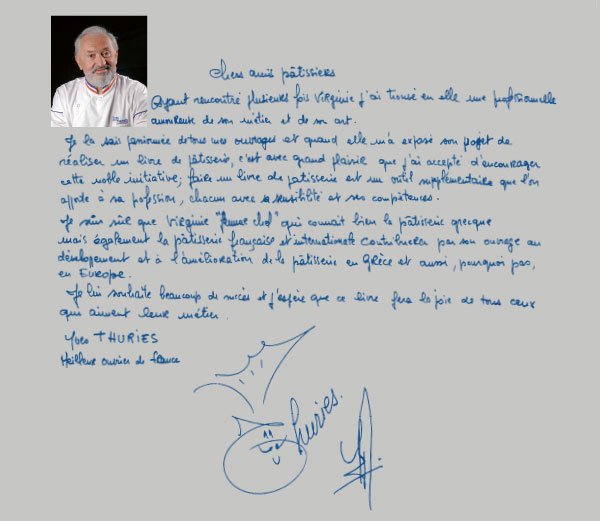 Chers amis pâtissiers
Ayant rencontré plusieurs fois Virginie j'ai trouvé en elle une professionnelle
amoureuse de son métier et de son art.
Je la sais passionnée de tous mes ouvrages et quand elle m'a exposé son projet de
réaliser un livre de pâtisserie, c'est avec grand plaisir que j'ai accepté d'encourager
cette noble initiative; faire un livre de patisserie est un outil supplémentaire que l'on
apporte à sa profession, chacun avec sa sensibilité et ses compétences.
Je suis sûr que Virginie "femme chef" qui connait bien la pâtisserie grecque
mais également la pâtisserie française et internationale contribuera par son ouvrage au
développement et à l'amélioration de la pâtisserie en Grèce et aussi, pourquoi pas,
en Europe.
Je lui souhaite beaucoup de succès et j'espère que ce livre fera la joie de tous ceux
qui aiment leur métier.
Yves THURIES
Meilleur ouvrier de France
Thuries.